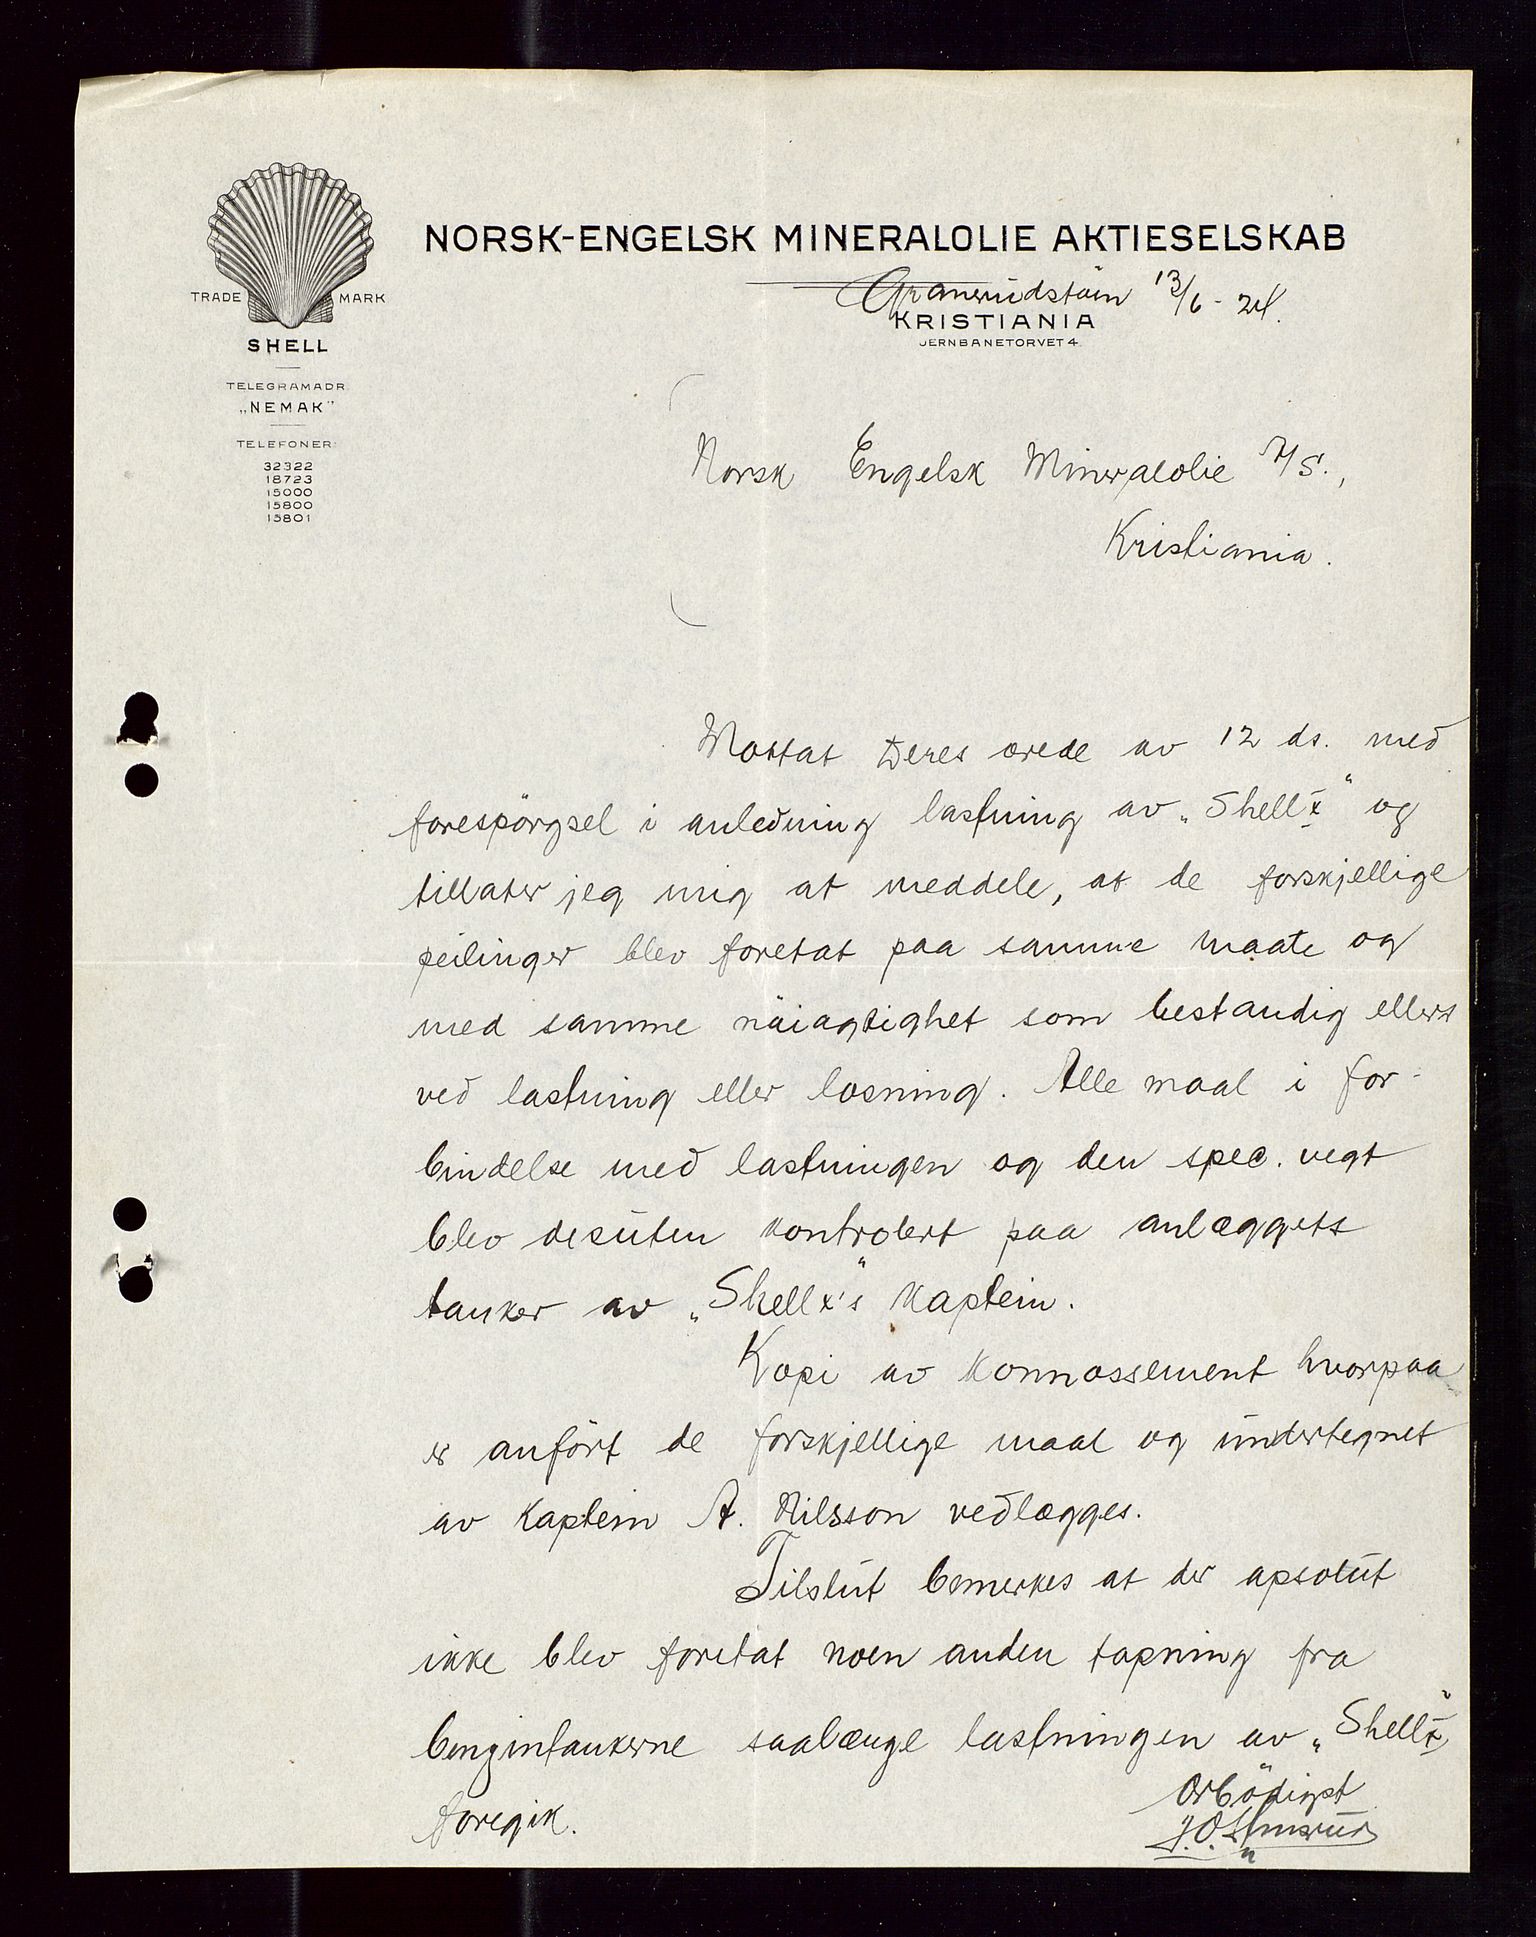 NORSK-ENGELSK MINERALOLIE AKTIESELSKAB
TRADE MARK
SHELL
TELEGRAMADR.
„NEMAK"
TELEFONER:
32322
18723
15000
15800
15801
Granerudstöen 13/6 - 24.
KRISTIANIA
JERNBANETORVET 4.
Norsk Engelsk Mineralolie A/S.,
Kristiania.
Mottat Deres ærede av 12 ds. med
forespörgsel i anledning lastning av „Shell x" og
tillater jeg mig at meddele, at de forskjellige
peilinger blev foretat paa samme maate og
med samme nöiagtighet som bestandig ellers
ved lastning eller losning. Alle maal i for-
bindelse med lastningen og den spec. vegt
blev desuten kontrolert paa anlæggets
tanker av „Shell x's" kaptein.
Kopi av konnossement hvorpaa
er anfört de forskjellige maal og undertegnet
av kaptein A. Nilsson vedlægges.
Tilslut bemerkes at der apsolut
ikke blev foretat noen anden tapning fra
benzintankerne saalænge lastningen av „Shell x"
foregik.
Ærbödigst
J.O.